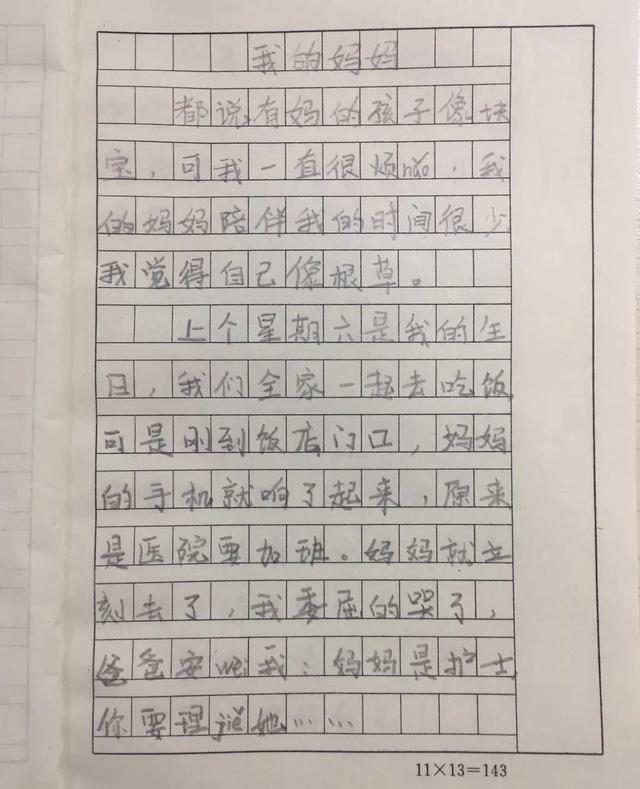 我的妈妈
都说有妈的孩子像块
宝，可我一直很烦nǎo，我
的妈妈陪伴我的时间很少
我觉得自己像根草。
上个星期六是我的生
日，我们全家一起去吃饭，
可是刚到饭店门口，妈妈
的手机就响了起来，原来
是医院要加班。妈妈就立
刻去了，我委屈的哭了，
爸爸安wèi我：妈妈是护士
你要理jiě她……
11×13=143